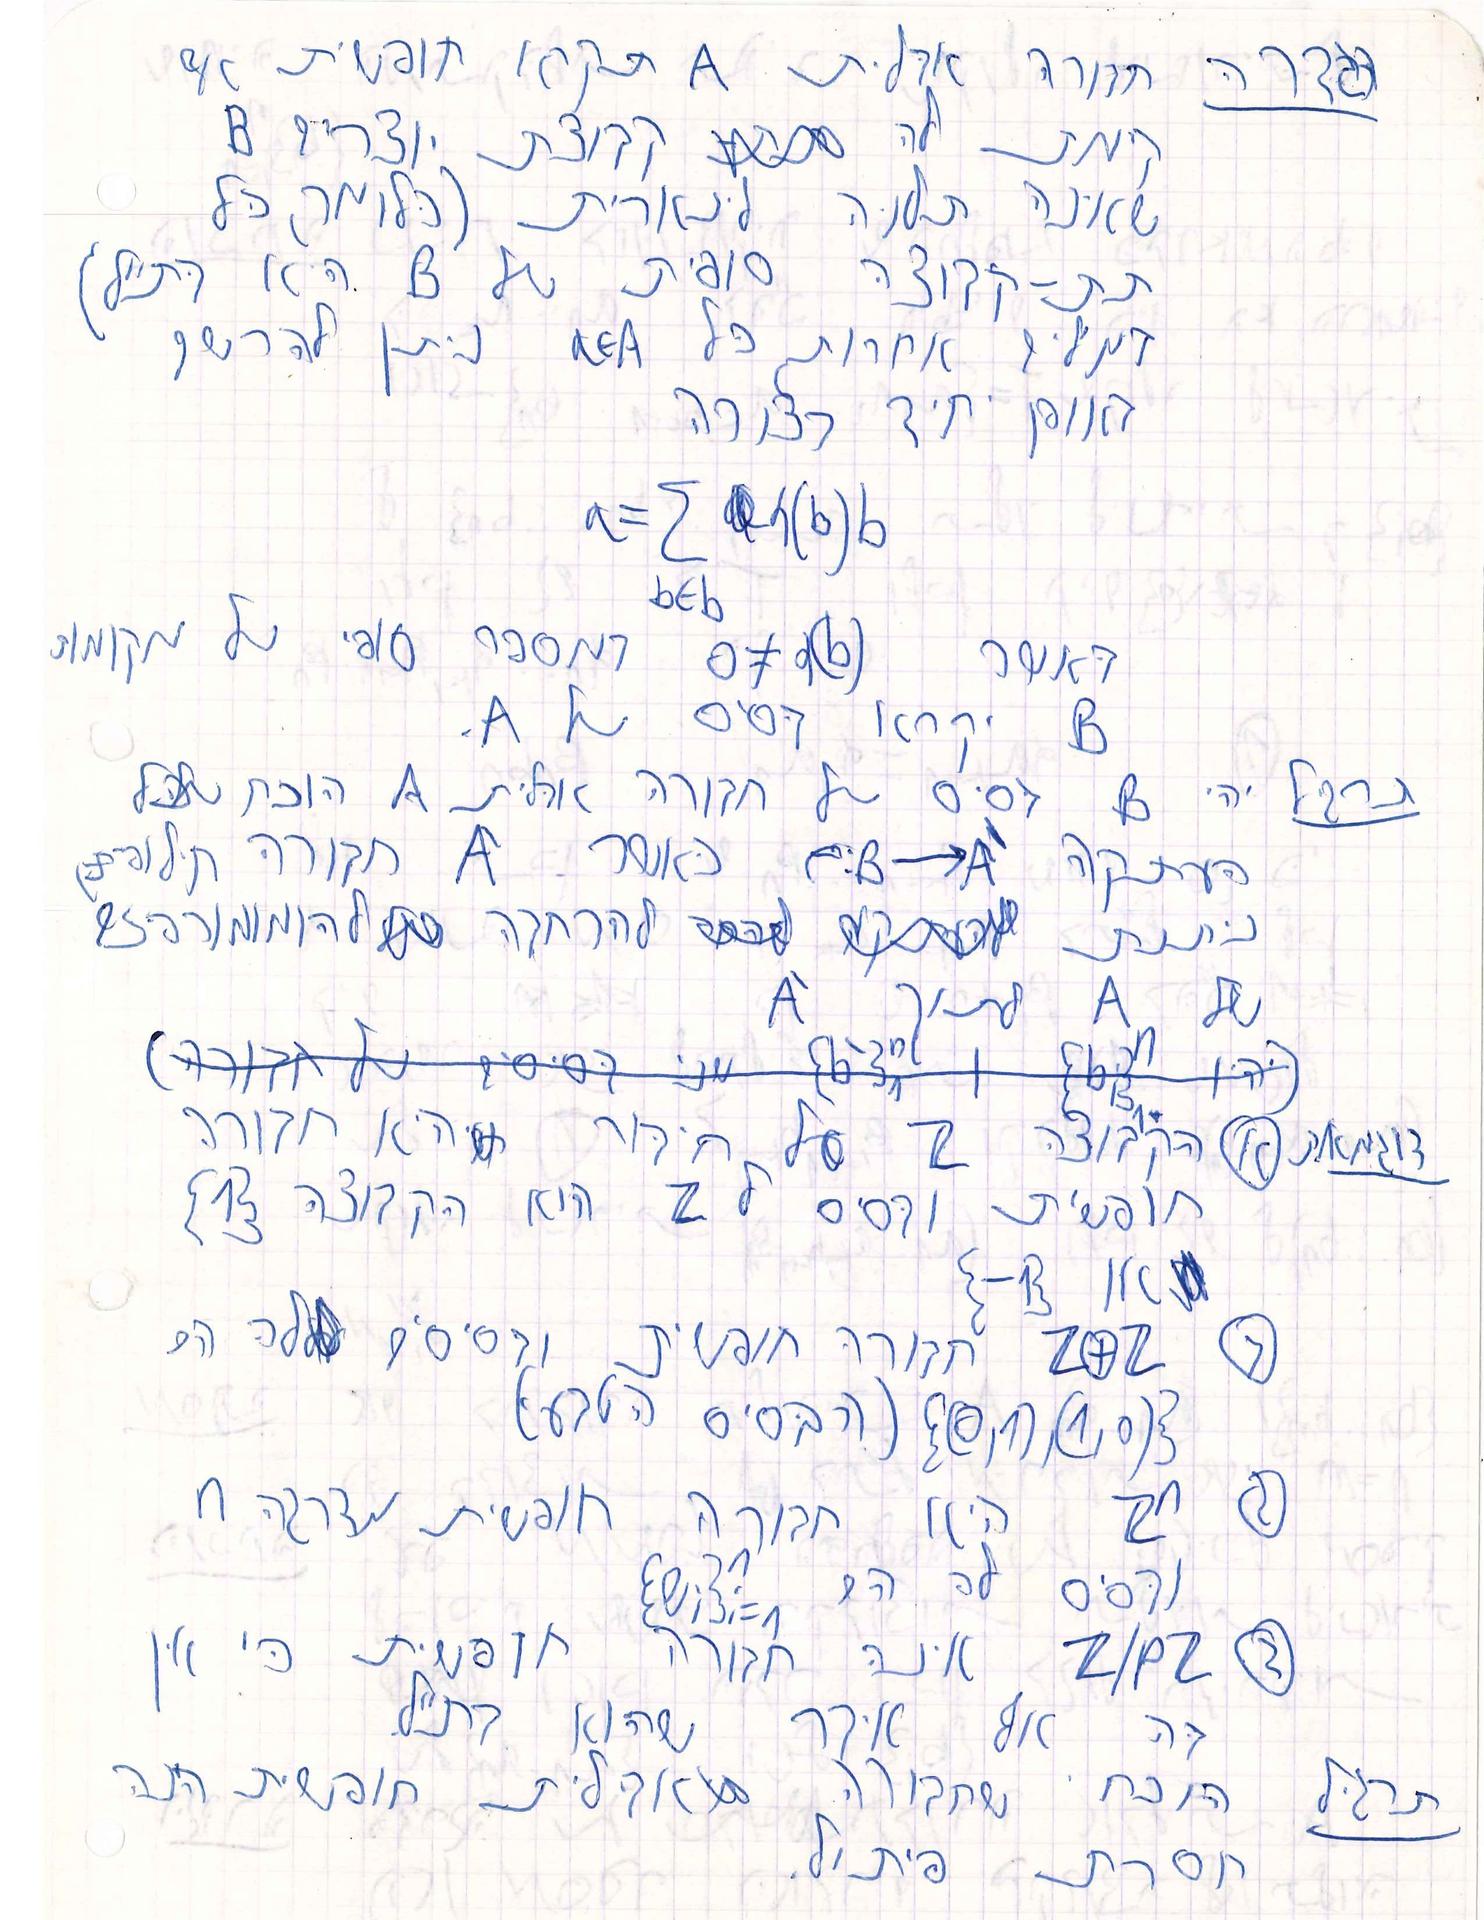 הגדרה חבורה אבלית A תקרא חופשית אם
קימת לה קבוצת יוצרים B
שאינה תלויה לינארית (כלומר, כל
תת-קבוצה סופית של B היא בת"ל)
במלים אחרות כל a∈A ניתן להרשם
באופן יחיד בצורה
a = ∑ n(b)b
b∈b
כאשר n(b) ≠ 0 במספר סופי של מקומות
B יקרא בסיס של A.
תרגיל יהי B בסיס של חבורה אבלית A הוכח שכל
העתקה B→A' כאשר A' חבורה חילופית,
ניתנת להרחבה להומומורפיזם
של A לתוך A'
דוגמאות (א) הקבוצה Z של חיבור היא חבורה
חופשית ובסיס ל Z הוא הקבוצה {1}
או {-1}
(ב) Z⊕Z חבורה חופשית ובסיסים לה הם
{(0,1),(1,0)} (הבסיס הטבעי)
(ג) Zⁿ היא חבורה חופשית מדרגה n
ובסיס לה הם
(ד) Z/pZ אינה חבורה חופשית כי אין
בה אף איבר שהוא בת"ל.
תרגיל הוכח שחבורה אבלית חופשית הינה
חסרת פיתול.